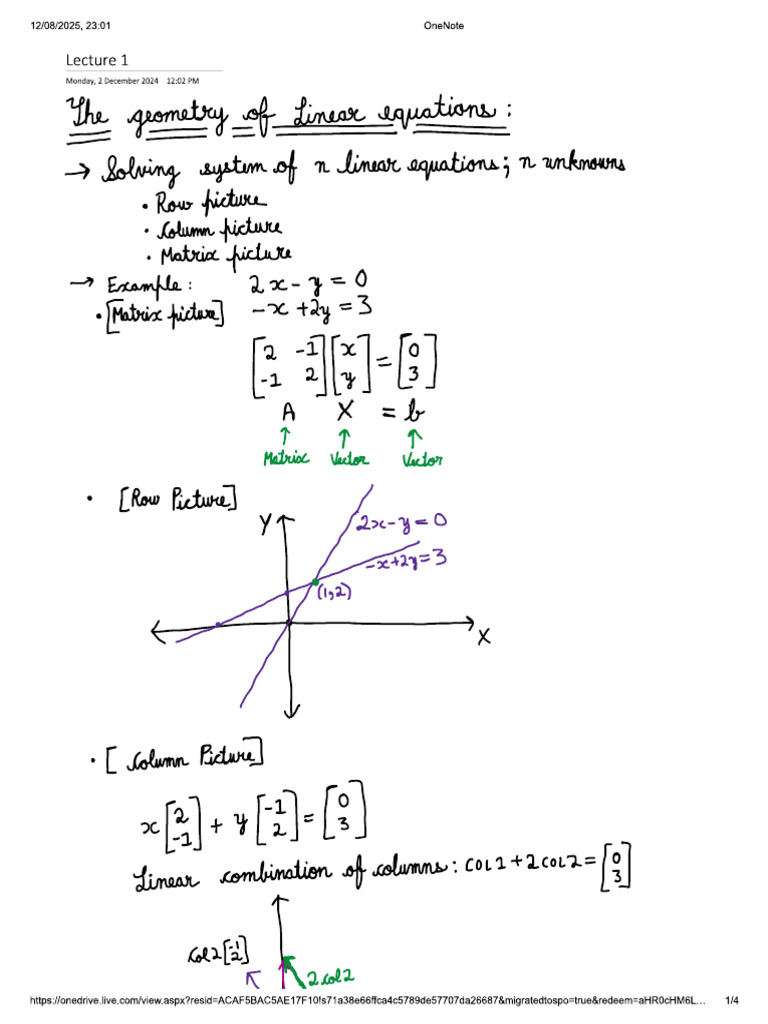 12/08/2025, 23:01 OneNote
Lecture 1
Monday, 2 December 2024 12:02 PM
The geometry of Linear equations:
→ Solving system of n linear equations; n unknowns
• Row picture
• Column picture
• Matrix picture
→ Example: 2x - y = 0
• [Matrix picture] -x + 2y = 3
[2 -1] [x] = [0]
[-1 2] [y] [3]
A X = b
↑ ↑ ↑
Matrix Vector Vector
• [Row Picture]
Y
2x - y = 0
-x + 2y = 3
(1,2)
X
• [Column Picture]
x [2] + y [-1] = [0]
[-1] [2] [3]
Linear combination of columns: COL1 + 2COL2 = [0]
[3]
Col2 [-1]
[2]
2 col2
https://onedrive.live.com/view.aspx?resid=ACAF5BAC5AE17F10!s71a38e66ffca4c5789de57707da26687&migratedtospo=true&redeem=aHR0cHM6L... 1/4